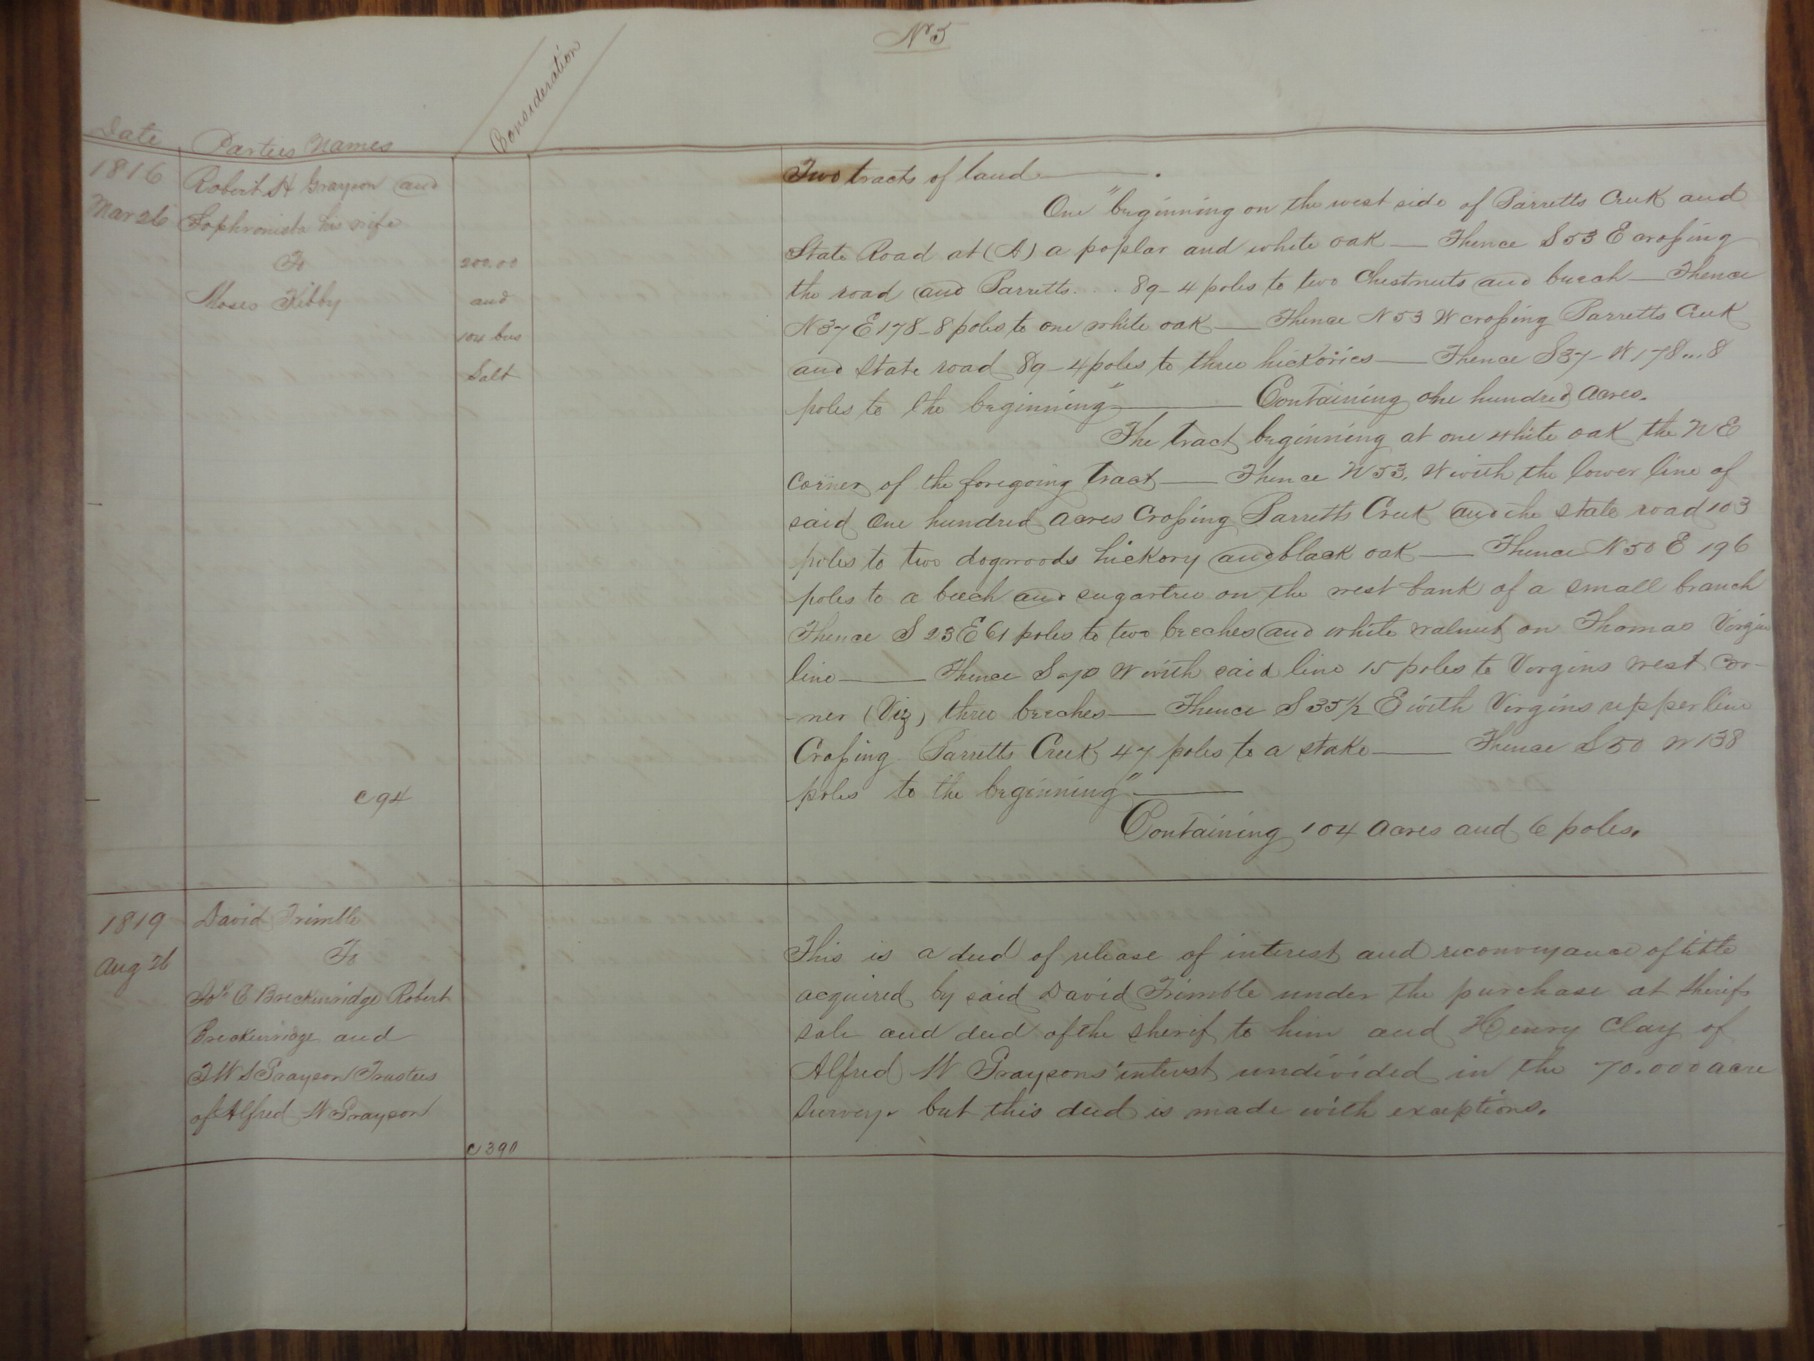 No 5
Date
Parties Names
Consideration
1816
Mar 26
Robert H Grayson and
Sophronista his wife
To
Moses Kibby
202.00
and
104 bus
Salt
Two tracts of land.
One "beginning on the west side of Parretts Creek and
State Road at (A) a poplar and white oak — Thence S 53 E crossing
the road and Parretts .... 89-4 poles to two Chestnuts and beech — Thence
N 37 E 178-8 poles to one white oak — Thence N 53 W crossing Parretts Creek
and State road 89-4 poles to three hickories — Thence S 37 - W 178..8
poles to the beginning" — Containing one hundred acres.
The tract beginning at one white oak the N E
corner of the foregoing tract — Thence N 53. W with the lower line of
said One hundred acres Crossing Parretts Creek and the state road 103
poles to two dogwoods hickory and black oak — Thence N 50 E 196
poles to a beech and sugartree on the west bank of a small branch
Thence S 23 E 61 poles to two beeches and white walnut on Thomas Virgin
line — Thence S 70 W with said line 15 poles to Virgins west cor-
-ner (Viz) three beeches — Thence S 35 1/2 E with Virgins upper line
Crossing Parretts Creek 47 poles to a stake — Thence S 50 W 138
poles to the beginning" —
C 94
Containing 104 Acres and 6 poles.
1819
Aug 26
David Trimble
To
C Breckinridge Robert
Breckinridge and
Grayson Trustees
of Alfred W Grayson
C 390
This is a deed of release of interest and reconveyance of title
acquired by said David Trimble under the purchase at Sherifs
sale and deed of the sherif to him and Henry Clay of
Alfred W Graysons' interest undivided in the 70.000 acre
Survey. but this deed is made with exceptions.